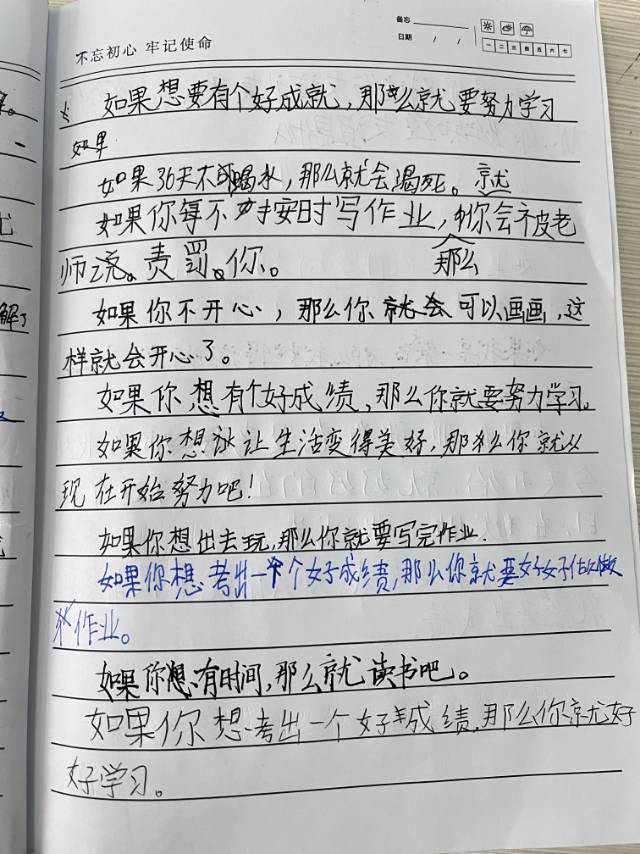 不忘初心 牢记使命
备忘
日期 / /
一 二 三 四 五 六 七
如果想要有个好成就，那么就要努力学习
如果
如果36天不喝水，那么就会渴死。就
如果你每不按时写作业，你会被老
师浇。责罚。你。 那么
如果你不开心，那么你就会可以画画，这
样就会开心了。
如果你想有个好成绩，那么你就要努力学习。
如果你想让生活变得美好，那么你就从
现在开始努力吧！
如果你想出去玩，那么你就要写完作业.
如果你想考出一个好成绩，那么你就要好好做
作业。
如果你想有时间，那么就读书吧。
如果你想考出一个好成绩，那么你就好
好学习。
解了